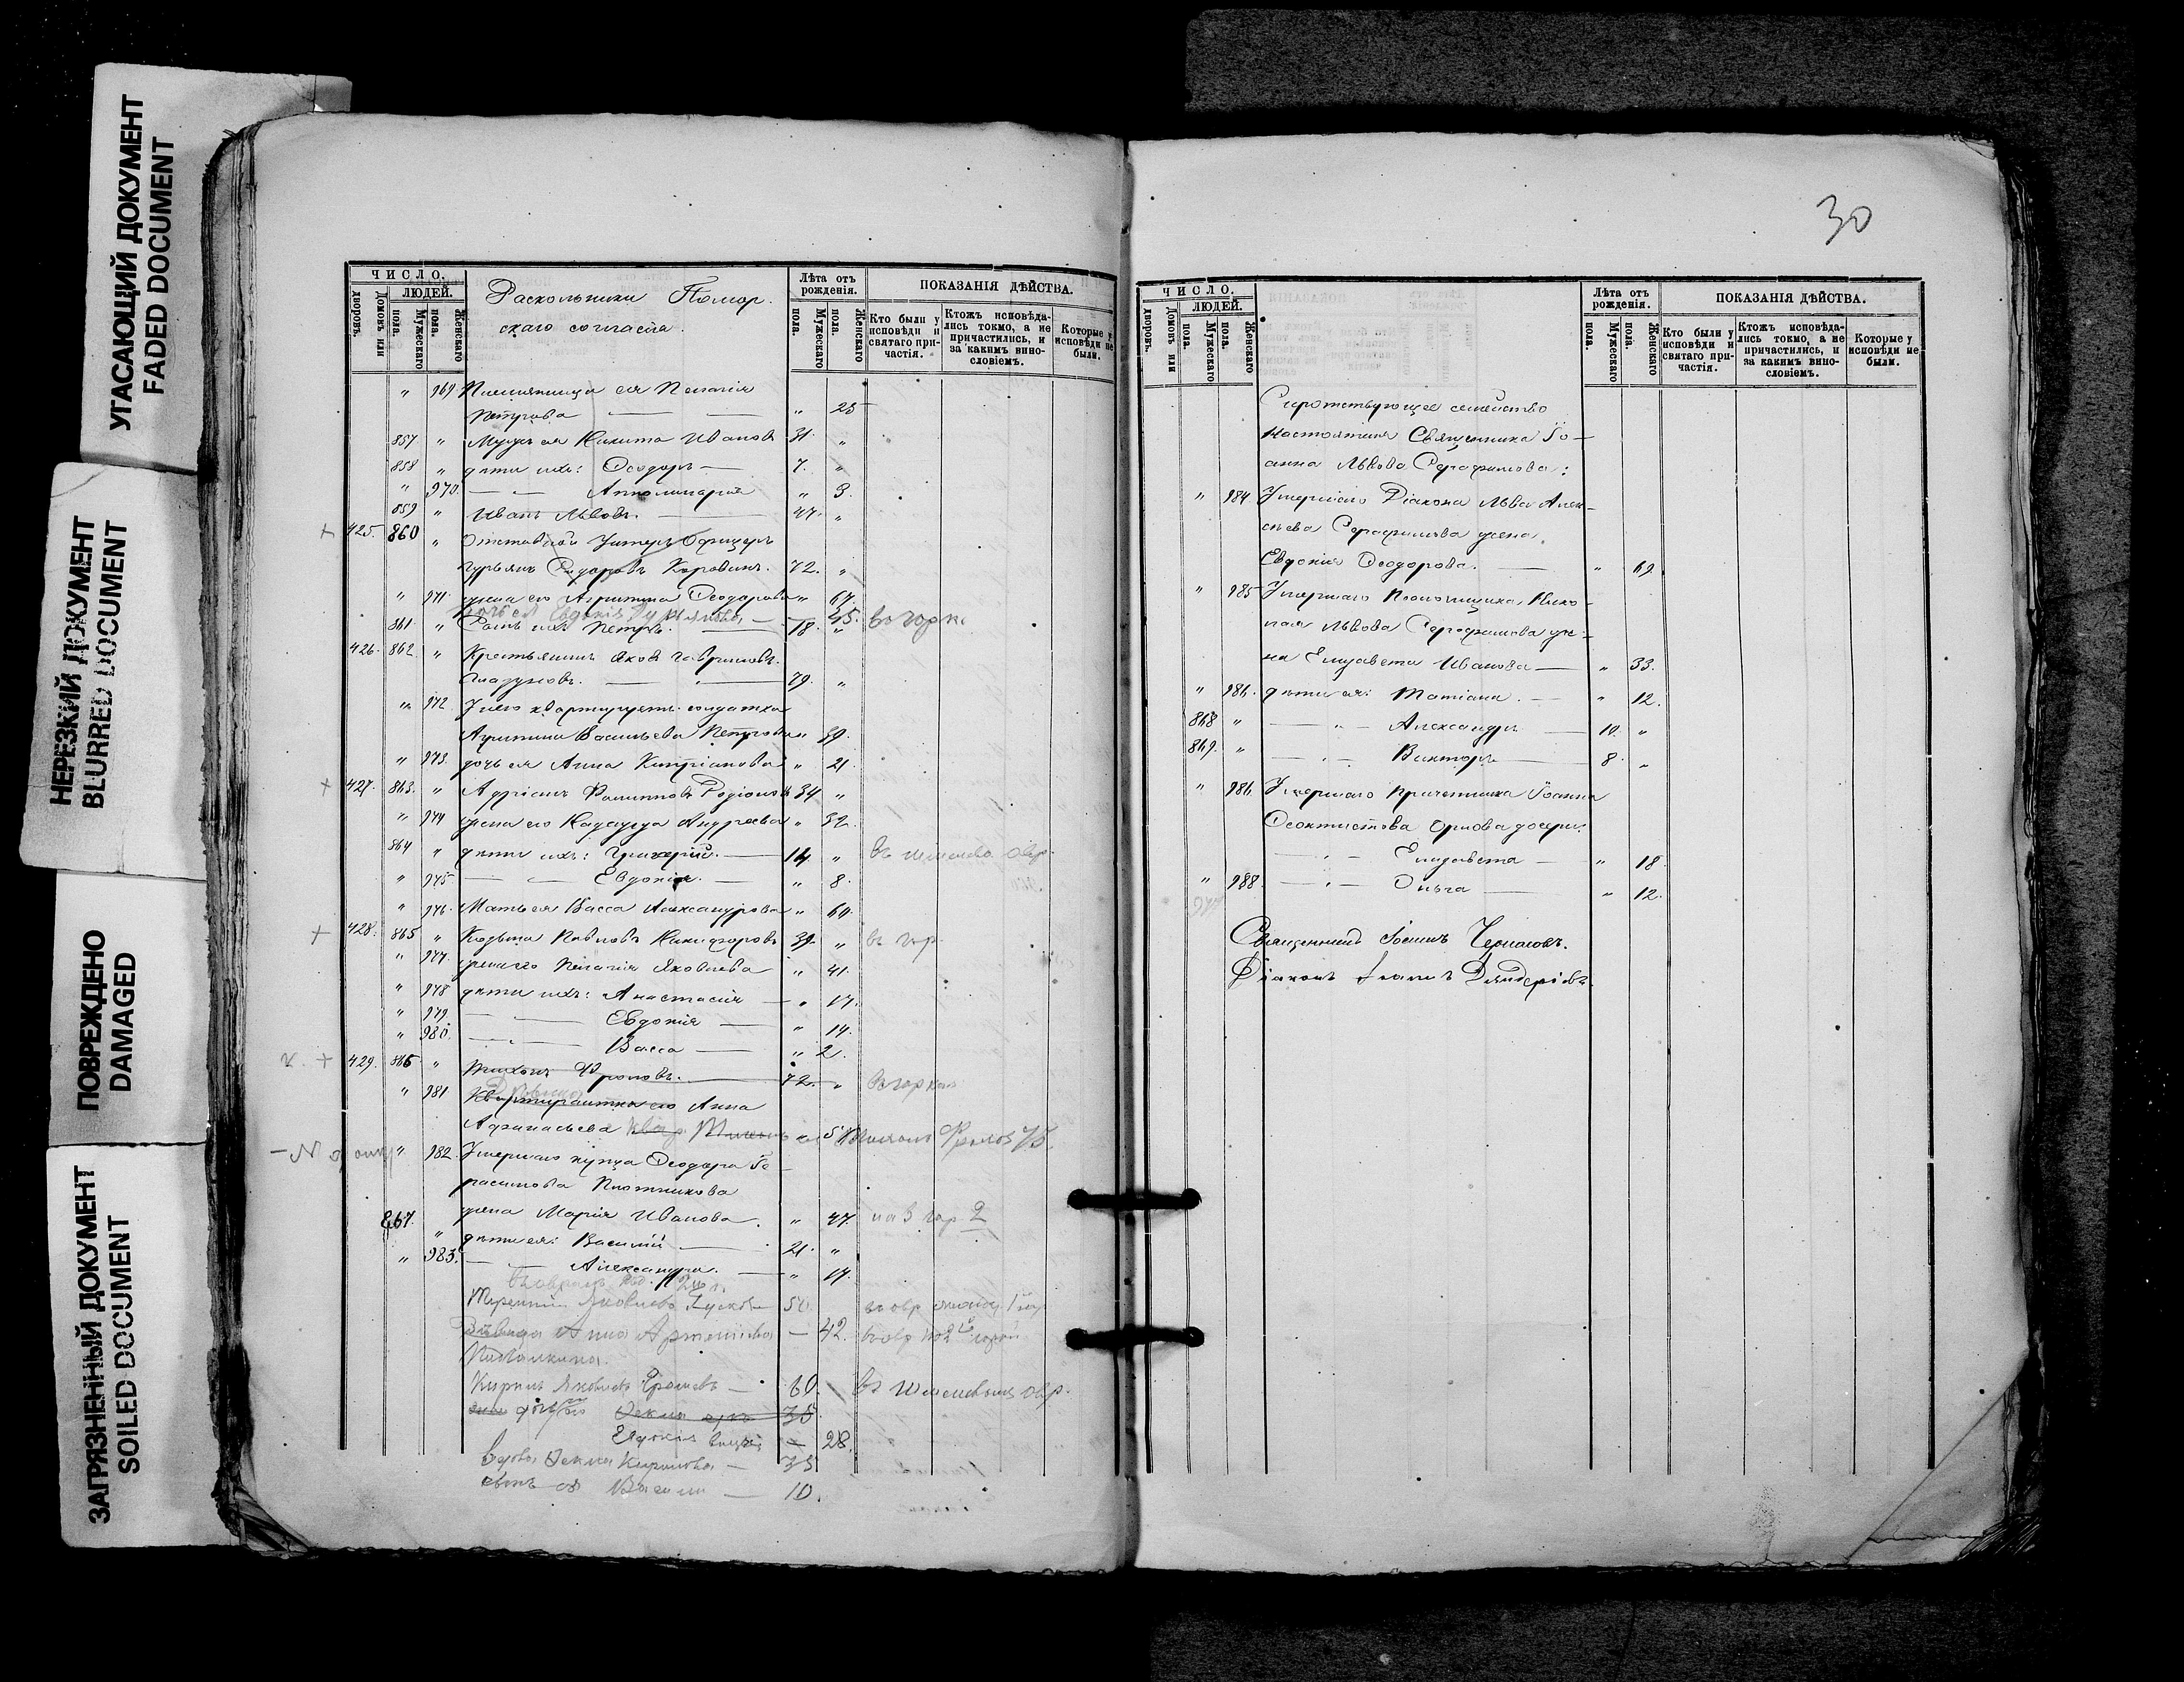 УГАСАЮЩИЙ ДОКУМЕНТ
FADED DOCUMENT
НЕРЕЗКИЙ ДОКУМЕНТ
BLURRED DOCUMENT
ПОВРЕЖДЕНО
DAMAGED
ЗАГРЯЗНЕННЫЙ ДОКУМЕНТ
SOILED DOCUMENT
ЧИСЛО.
Домовъ или дворовъ.
ЛЮДЕЙ.
Мужескаго пола.
Женскаго пола.
Раскольники Помор-
скаго согласія.
Лѣта отъ рожденія.
Мужескаго пола.
Женскаго пола.
ПОКАЗАНІЯ ДѢЙСТВА.
Кто были у исповѣди и святаго при-частія.
Ктожъ исповѣда-лись токмо, а не причастились, и за какимъ вино-словіемъ.
Которые у исповѣди не были.
" 969 Племянница ея Пелагія
Петрова " 25
857 " Мужъ ея Никита Ивановъ 31. "
858 " дѣти ихъ: Ѳеодоръ 7. "
" 970. Апполинарія " 3.
859 " Иванъ Львовъ. 47. "
+ 425. 860 " Отставной Унтеръ Офицеръ
Гурьянъ Сидоровъ Коровинъ. 72. "
" 971. жена его Агрипина Ѳеодорова " 67.
дочь ея Евдокія 45.
861. " Сынъ ихъ Петръ. 18. "
426. 862. " Крестьянинъ Яковъ Гавриловъ
Глазуновъ. 79. "
" 972. У него квартируетъ солдатка
Агрипина Васильева Петрова " 59.
" 973. дочь ея Анна Кипріанова " 21.
+ 427. 863. " Адріанъ Филипповъ Родіоновъ 34 "
" 974 жена его Надежда Андреева " 32.
864 " дѣти ихъ: Григорій. 14 "
" 975. Евдокія. " 8.
" 976. Мать ея Васса Александрова " 60.
+ 428. 865 " Козьма Павловъ Никифоровъ 39. " въ гор.
" 977. жена его Пелагія Яковлева " 41.
" 978 дѣти ихъ: Анастасія " 17.
" 979. Евдокія " 14.
" 980. Васса " 2.
+ 429. 866 " Тихонъ Фроловъ. 72. "
" 981 Квартирантка его Анна
Афанасьева
" 982. Умершаго купца Ѳеодора Ге-
расимова Плотникова
жена Марія Иванова. " 47.
867. " дѣти ея: Василій 21. "
" 983. Александра. " 17.
Терентій Яковлевъ 50
Дѣвица Анна Артемьева — 42.
Кирилъ Яковлевъ 60.
Ѳекла 35
Евдокія — 28.
Вдова Ѳекла Кирилова — 35
сынъ ея Василій — 10.
30
ЧИСЛО.
Домовъ или дворовъ.
ЛЮДЕЙ.
Мужескаго пола.
Женскаго пола.
Лѣта отъ рожденія.
Мужескаго пола.
Женскаго пола.
ПОКАЗАНІЯ ДѢЙСТВА.
Кто были у исповѣди и святаго при-частія.
Ктожъ исповѣда-лись токмо, а не причастились, и за какимъ вино-словіемъ.
Которые у исповѣди не были.
Сиротствующее семейство
настоятеля Священника Іо-
анна Львова Серафимова:
" 984 Умершаго Діакона Льва Алек-
сѣева Серафимова жена
Евдокія Ѳеодорова. " 69
" 985 Умершаго Псаломщика Нико-
лая Львова Серафимова же-
на Елизавета Иванова " 33.
" 986. дѣти ея: Татіана. " 12.
868 " Александръ 10. "
869. " Викторъ 8. "
" 986 Умершаго Причетника Іоанна
Ѳеоктистова Орлова дочери:
Елизавета " 18
" 988. Ольга " 12.
Священникъ Іоаннъ
Діаконъ Іоаннъ